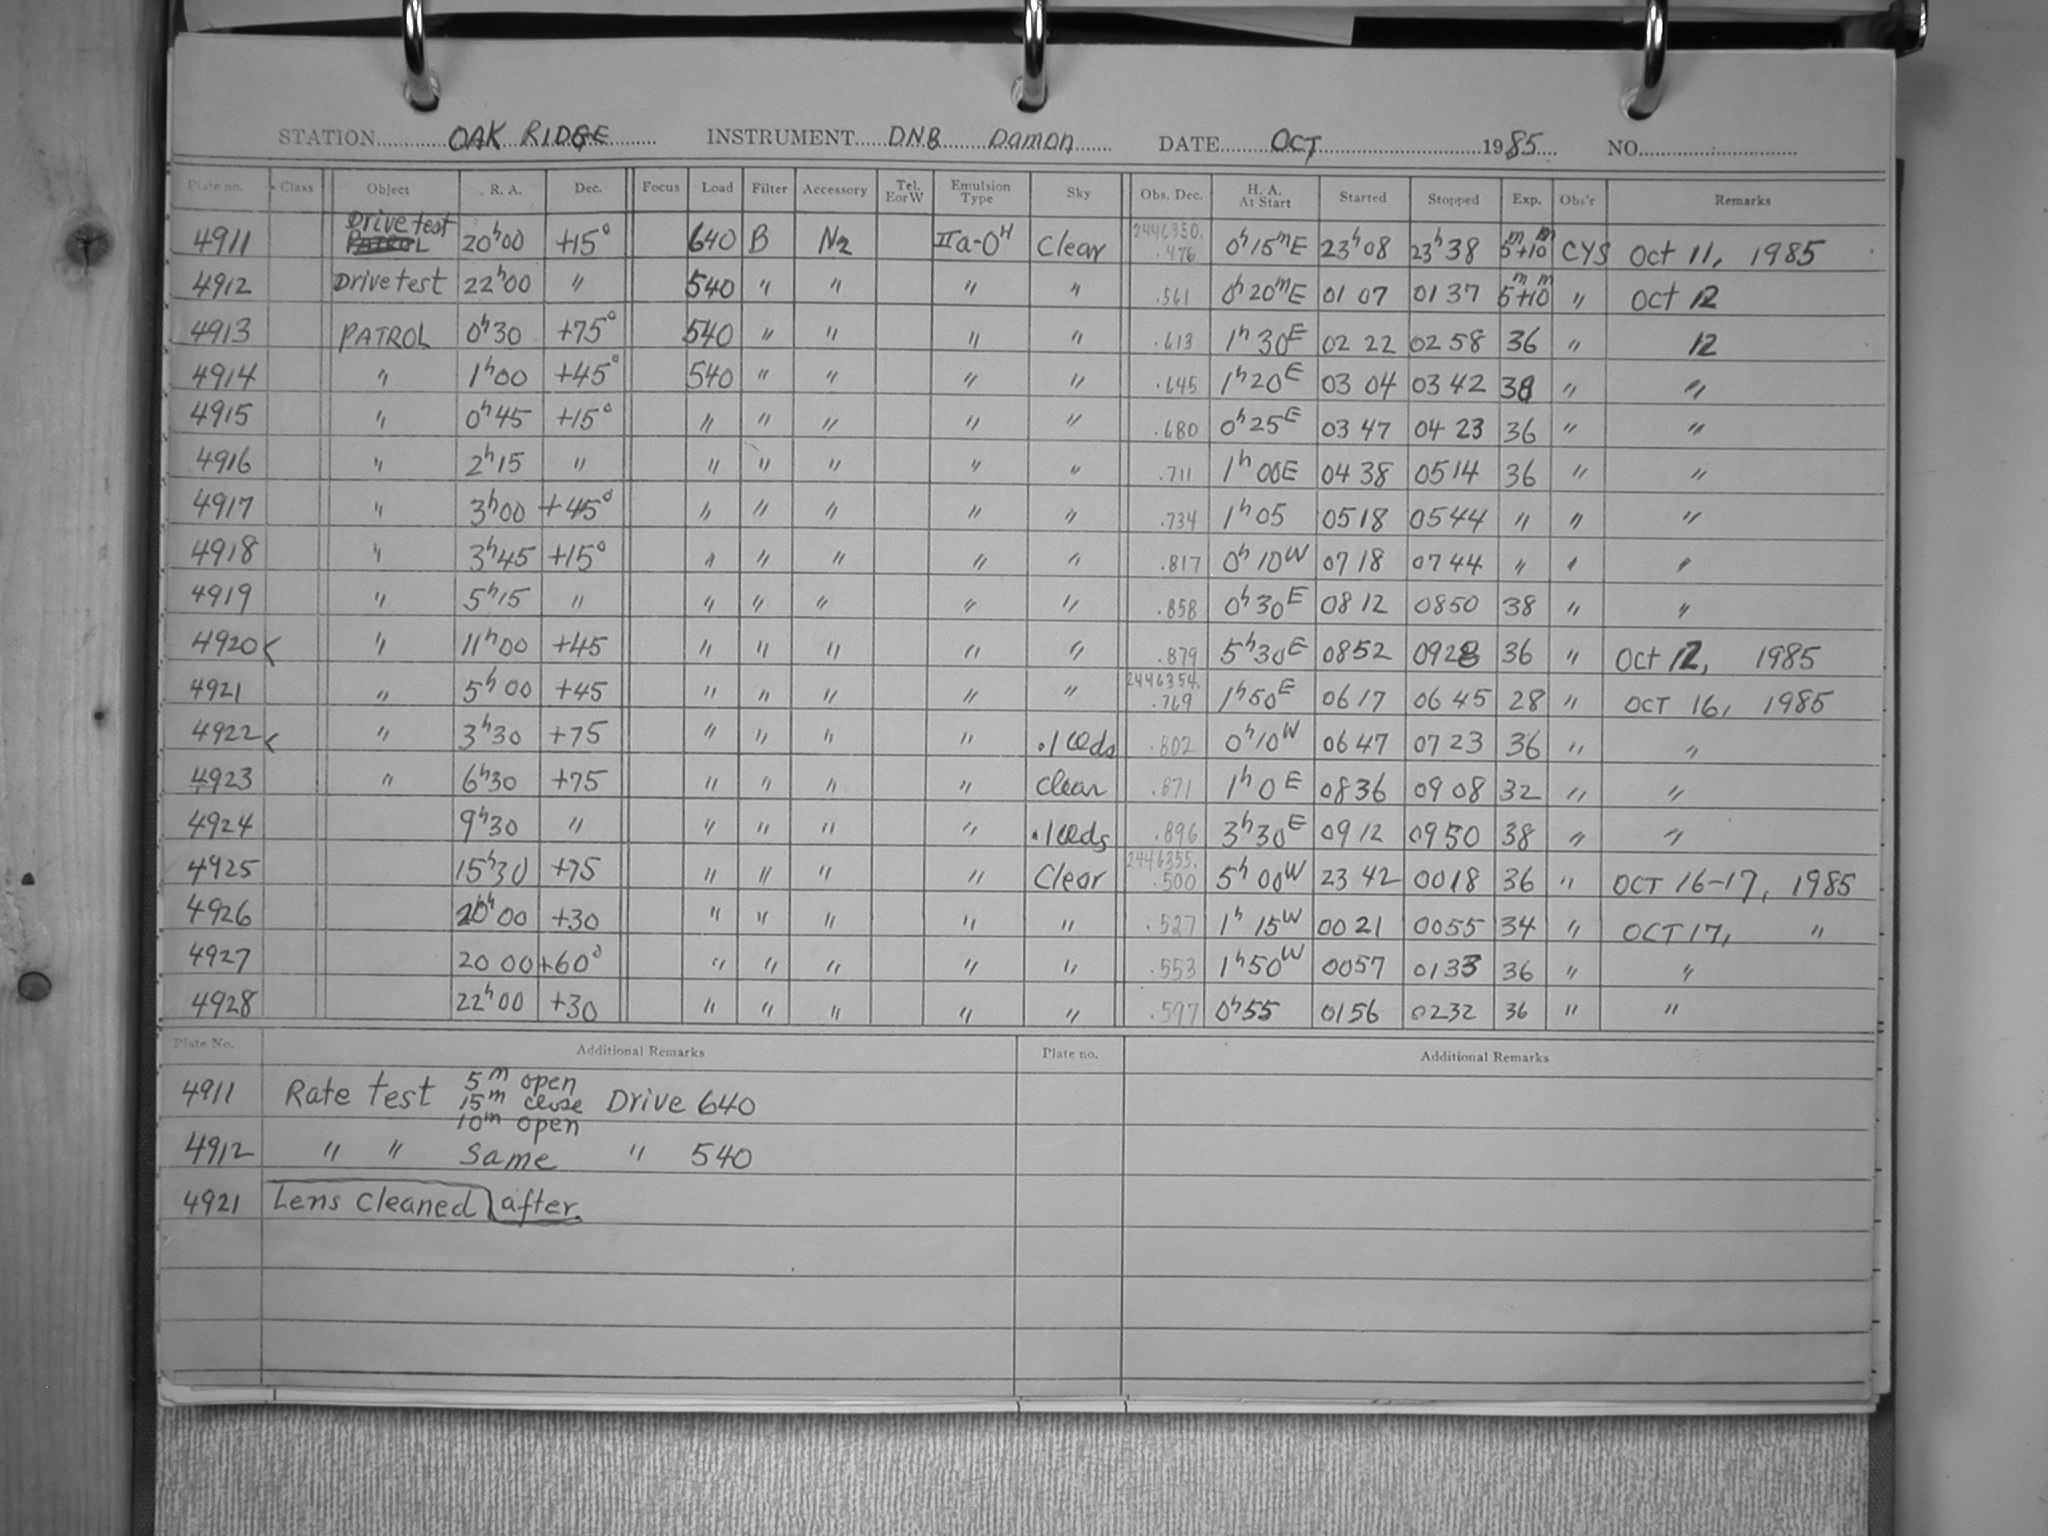 STATION OAK RIDGE INSTRUMENT DNB Damon DATE OCT 1985 NO.
Plate no. Class Object R. A. Dec. Focus Load Filter Accessory Tel. E or W Emulsion Type Sky Obs. Dec. H. A. At Start Started Stopped Exp. Obs'r Remarks
4911 Drive test PATROL 20h00 +15° 640 B N2 IIa-OH Clear 2446350.476 0h15mE 23h08 23h38 5m+10m CYS Oct 11, 1985
4912 Drive test 22h00 " 540 " " " " .561 0h20mE 01 07 01 37 5m+10m " Oct 12
4913 PATROL 0h30 +75° 540 " " " " .613 1h30E 02 22 02 58 36 " 12
4914 " 1h00 +45° 540 " " " " .645 1h20E 03 04 03 42 38 " "
4915 " 0h45 +15° " " " " " .680 0h25E 03 47 04 23 36 " "
4916 " 2h15 " " " " " " .711 1h00E 04 38 05 14 36 " "
4917 " 3h00 +45° " " " " " .734 1h05 05 18 05 44 " " "
4918 " 3h45 +15° " " " " " .817 0h10W 07 18 07 44 " " "
4919 " 5h15 " " " " " " .858 0h30E 08 12 08 50 38 " "
4920< " 11h00 +45 " " " " " .879 5h30E 08 52 09 28 36 " Oct 12, 1985
4921 " 5h00 +45 " " " " " 2446354.769 1h50E 06 17 06 45 28 " OCT 16, 1985
4922< " 3h30 +75 " " " " .1 clds .802 0h10W 06 47 07 23 36 " "
4923 " 6h30 +75 " " " " clear .871 1h0E 08 36 09 08 32 " "
4924 9h30 " " " " " .1 clds .896 3h30E 09 12 09 50 38 " "
4925 15h30 +75 " " " " Clear 2446355.500 5h00W 23 42 00 18 36 " OCT 16-17, 1985
4926 20h00 +30 " " " " " .527 1h15W 00 21 00 55 34 " OCT 17, "
4927 20 00 +60° " " " " " .553 1h50W 00 57 01 33 36 " "
4928 22h00 +30 " " " " " .597 0h55 01 56 02 32 36 " "
Plate No. Additional Remarks Plate no. Additional Remarks
4911 Rate test 5m open
15m close Drive 640
10m open
4912 " " Same " 540
4921 Lens Cleaned after